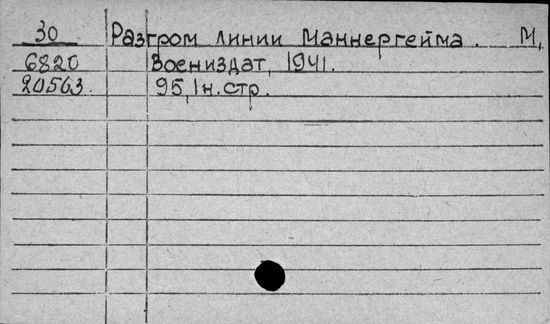 30 Разгром линии Маннергейма. М,
6820 Воениздат, 1941.
20563. 95, 1н.стр.